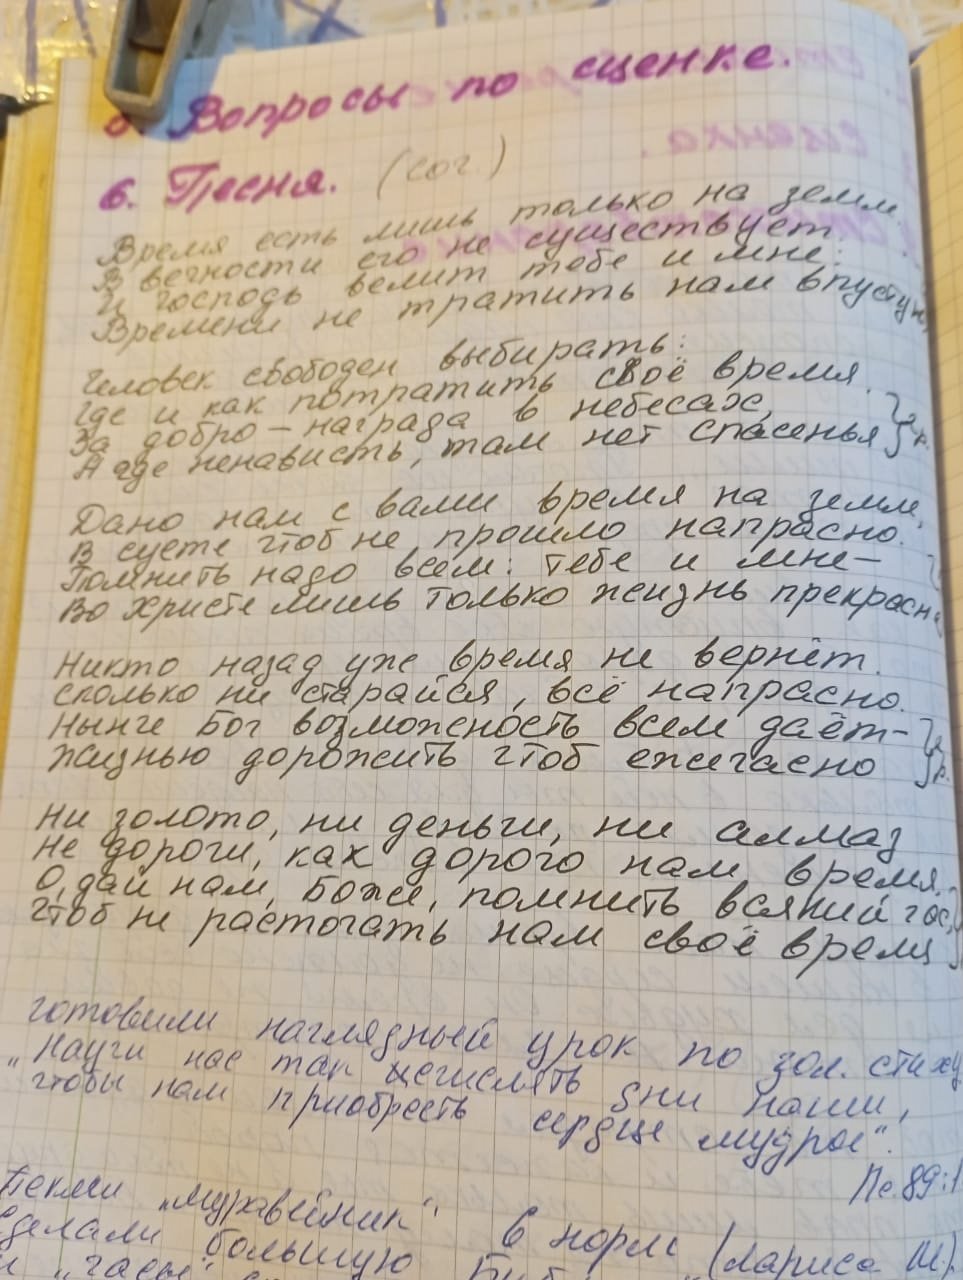 5. Вопросы по сценке.
6. Песня. (сог.)
Время есть лишь только на земле.
В вечности его не существует.
И господь велит тебе и мне:
Времени не тратить нам впустую,
Человек свободен выбирать:
Где и как потратить своё время.
За добро – награда в небесах,
А где ненависть, там нет спасенья
Дано нам с вами время на земле,
В суете чтоб не прошло напрасно.
Помнить надо всем: тебе и мне –
Во Христе лишь только жизнь прекрасна
Никто назад уже время не вернёт.
Сколько ни старайся, всё напрасно.
Нынче Бог возможность всем даёт –
Жизнью дорожить чтоб ежечасно
Ни золото, ни деньги, ни алмаз
Не дороги, как дорого нам время.
О, дай нам, Боже, помнить всякий час,
Чтоб не расточать нам своё время
готовили наглядный урок по зол. стиху
„Научи нас так исчислять дни наши,
чтобы нам приобресть сердце мудрое".
Пс. 89:1
Пекли „муравейник". 6 норм (Лариса Ш).
сделали большую
и „часы"